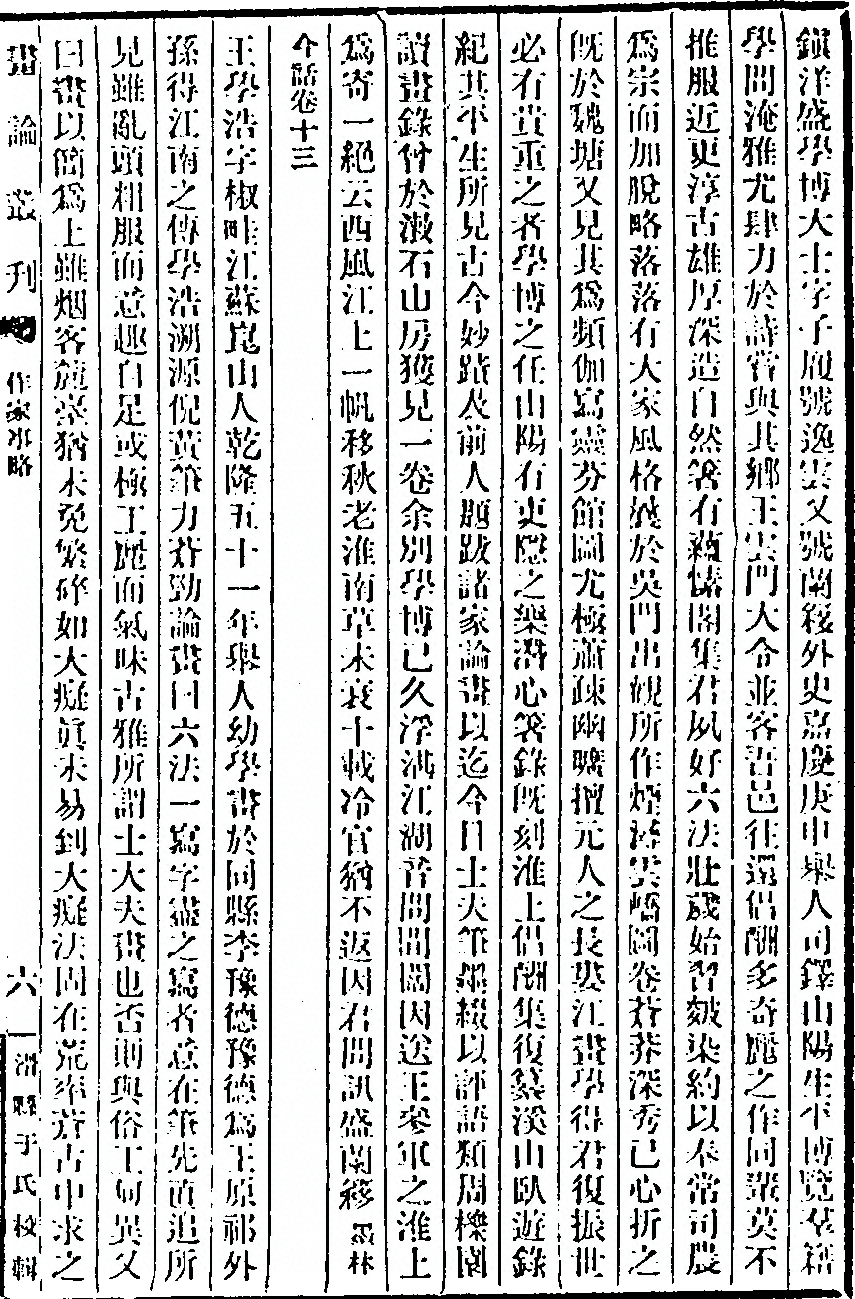 鎮洋盛學博大士字子履號逸雲又號蘭簃外史嘉慶庚申舉人司鐸山陽生平博覽羣籍
學問淹雅尤肆力於詩嘗與其鄉王雲門大令並客吾邑往還倡酬多奇麗之作同輩莫不
推服近更淳古雄厚深造自然箸有蘊愫閣集君夙好六法壯歲始習皴染約以奉常司農
爲宗而加脫略落落有大家風格嵗於吳門出觀所作煙嵐雲嶠圖卷蒼莽深秀已心折之
旣於魏塘又見其爲頻伽寫靈芬館圖尤極蕭疎幽曠擅元人之長婁江畫學得君復振世
必有貴重之者學博之任山陽有吏隱之樂潛心箸錄旣刻淮上倡酬集復纂溪山臥遊錄
紀其平生所見古今妙蹟及前人題跋諸家論畫以迄今日士夫筆墨綴以評語類周櫟園
讀畫錄曾於漱石山房獲見一卷余別學博已久浮湛江湖音問闊因送王參軍之淮上
爲寄一絕云西風江上一帆移秋老淮南草未衰十載冷官猶不返因君問訊盛蘭簃 墨林
今話卷十三
王學浩字椒畦江蘇崑山人乾隆五十一年舉人幼學畫於同縣李豫德豫德爲王原祁外
孫得江南之傳學浩溯源倪黃筆力蒼勁論畫曰六法一寫字盡之寫者意在筆先直追所
見雖亂頭粗服而意趣自足或極工麗而氣味古雅所謂士大夫畫也否則與俗工何異又
曰畫以簡爲上雖烟客麓臺猶未免繁碎如大癡眞未易到大癡法固在荒率蒼古中求之
畫論叢刊 作家事略 六 瀋縣于氏校輯